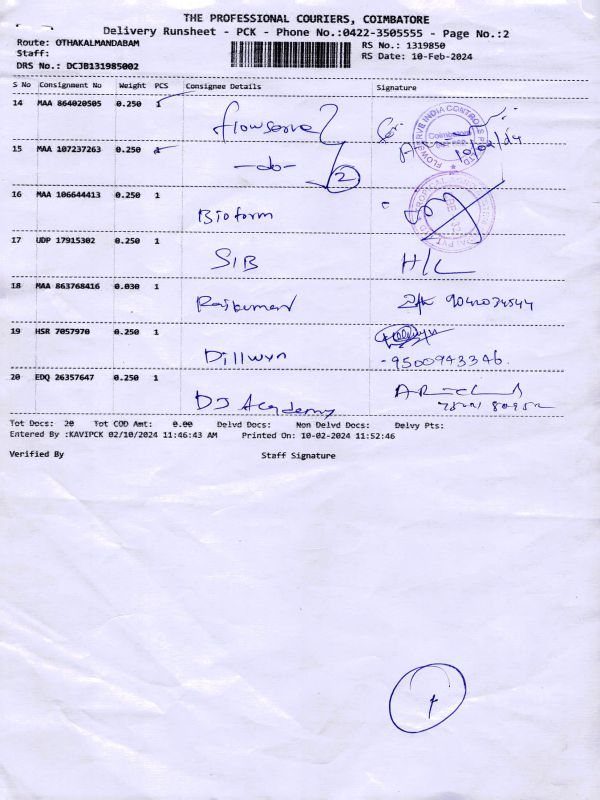 THE PROFESSIONAL COURIERS, COIMBATORE
Delivery Runsheet - PCK - Phone No.:0422-3505555 - Page No.:2
Route: OTHAKALMANDABAM
RS No.: 1319850
Staff:
RS Date: 10-Feb-2024
DRS No.: DCJB131985002
S No Consignment No Weight PCS Consignee Details Signature
14 MAA 864020505 0.250 1 flowserve
FLOWSERVE INDIA CONTROLS PVT LTD
Coimbatore
10/02/24
15 MAA 107237263 0.250 1 -do- 2
16 MAA 106644413 0.250 1 Bioform
17 UDP 17915302 0.250 1 SIB H/L
18 MAA 863768416 0.030 1 Rajkumar 9042034544
19 HSR 7057970 0.250 1 Dillwyn
-9500943346.
20 EDQ 26357647 0.250 1 DJ Academy
Tot Docs: 20 Tot COD Amt: 0.00 Delvd Docs: Non Delvd Docs: Delvy Pts:
Entered By :KAVIPCK 02/10/2024 11:46:43 AM Printed On: 10-02-2024 11:52:46
Verified By Staff Signature